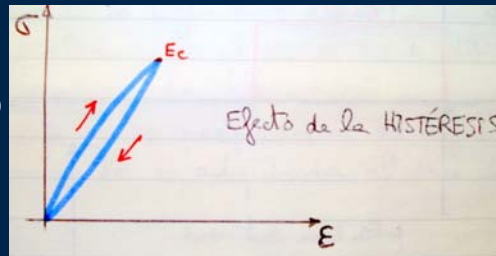 σ
Ec
Efecto de la HISTÉRESIS
ε